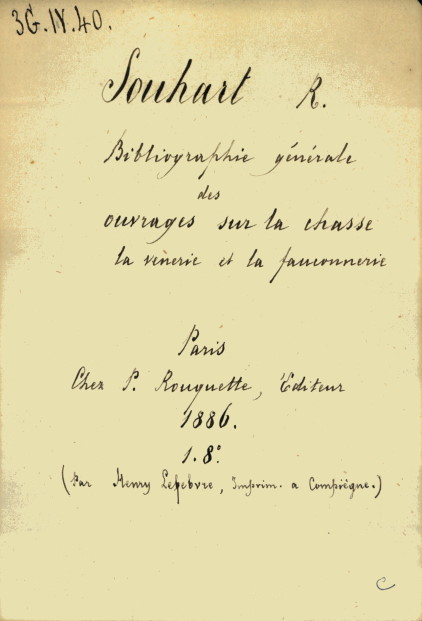 3G.IV.40.
Souhart R.
Bibliographie générale
des
ouvrages sur la chasse
la vènerie et la fauconnerie
Paris
Chez P. Rouquette, Éditeur
1886.
1.8°
(Par Henry Lefebvre, Imprim. a Compiègne.)
C